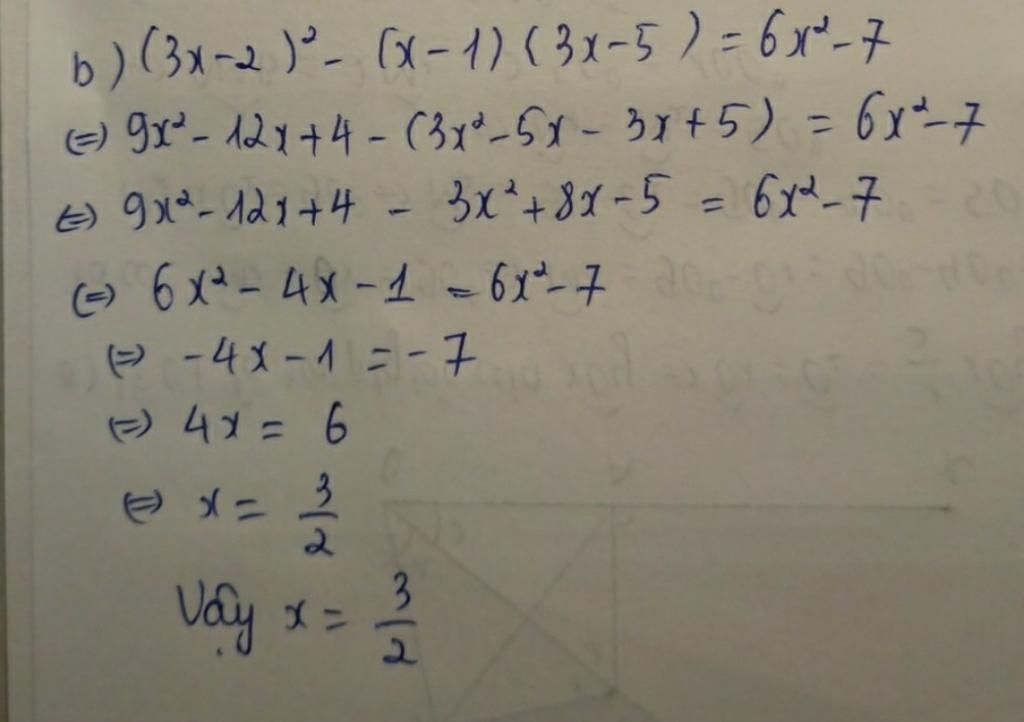 b) (3x-2)² - (x-1)(3x-5) = 6x²-7
(=) 9x²-12x+4-(3x²-5x-3x+5) = 6x²-7
(=) 9x²-12x+4 - 3x²+8x-5 = 6x²-7
(=) 6x²-4x-1 = 6x²-7
(=) -4x-1 = -7
(=) 4x = 6
(=) x = 3/2
Vậy x = 3/2